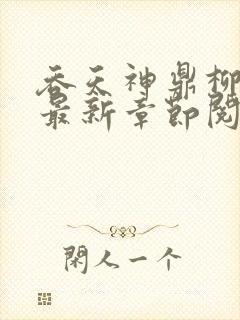 吞天神鼎柳
最新章節閱
閑人一个